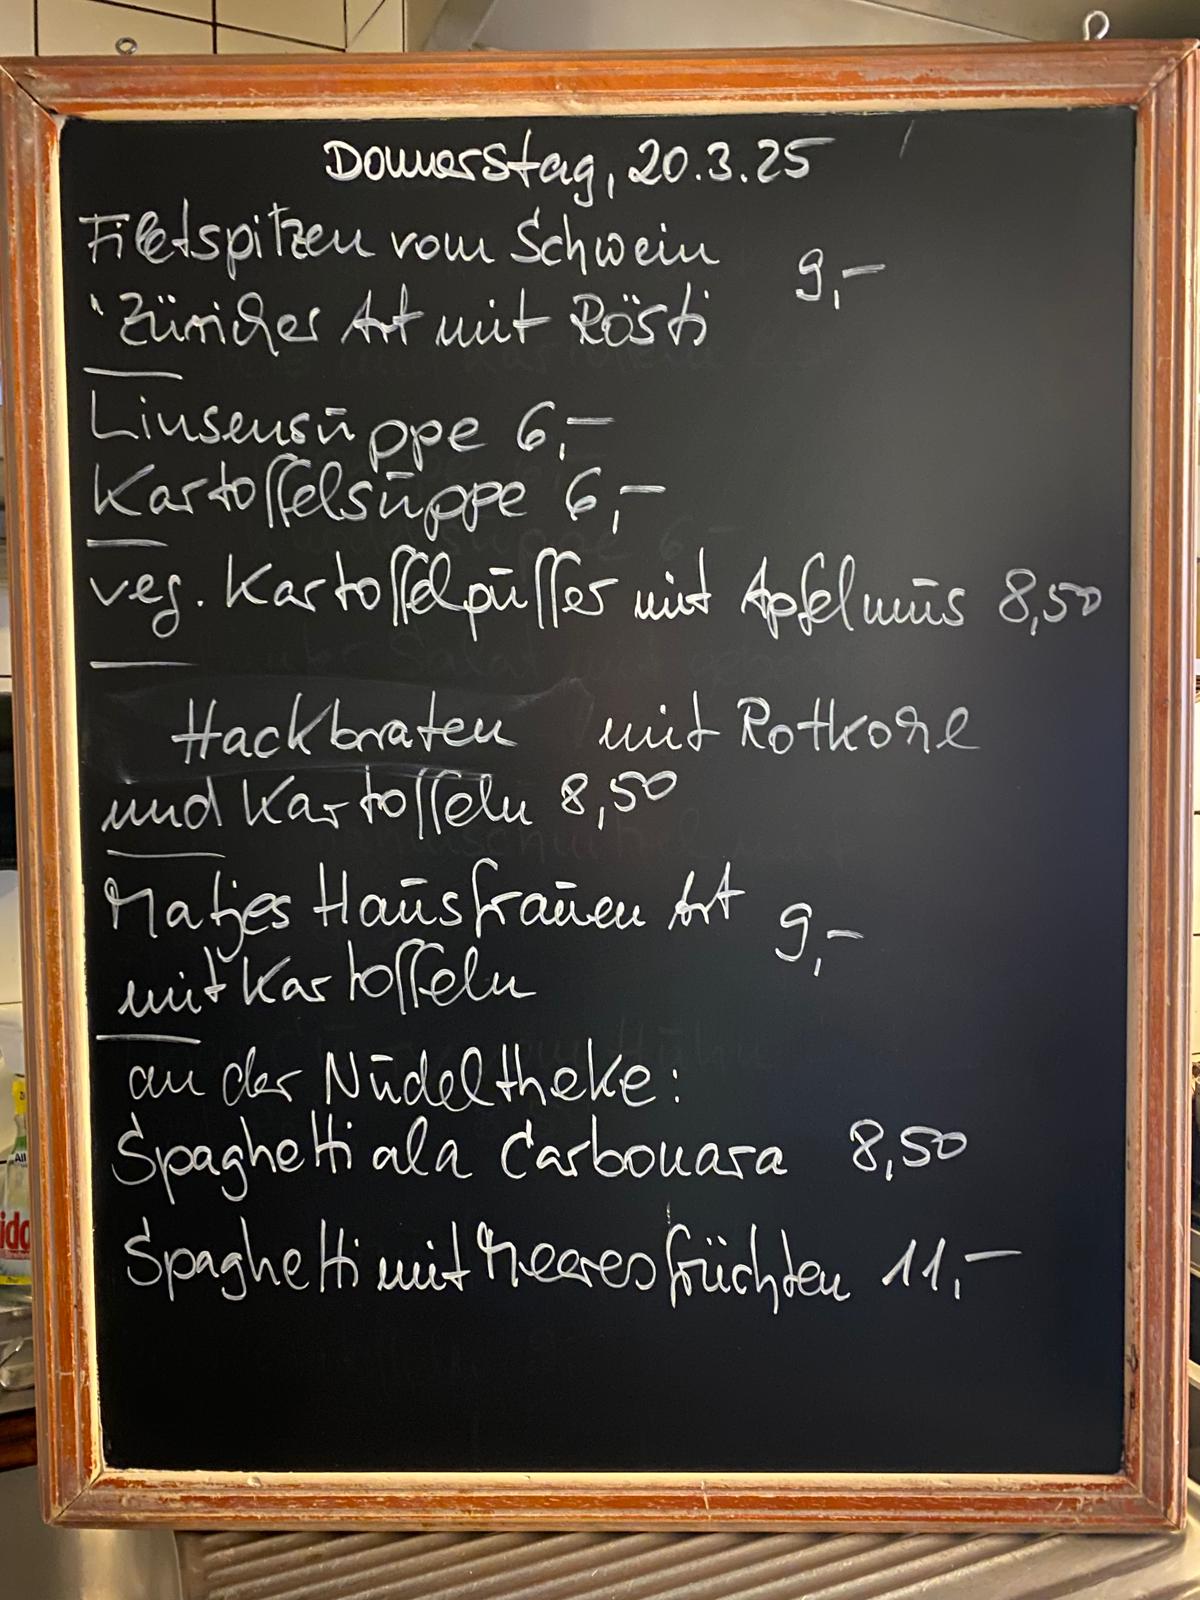 Donnerstag, 20.3.25
Filetspitzen vom Schwein 9,-
Züricher Art mit Rösti
Linsensuppe 6,-
Kartoffelsuppe 6,-
veg. Kartoffelpuffer mit Apfelmus 8,50
Hackbraten mit Rotkohl
und Kartoffeln 8,50
Matjes Hausfrauen Art 9,-
mit Kartoffeln
an der Nudeltheke:
Spaghetti ala Carbonara 8,50
Spaghetti mit Meeresfrüchten 11,-